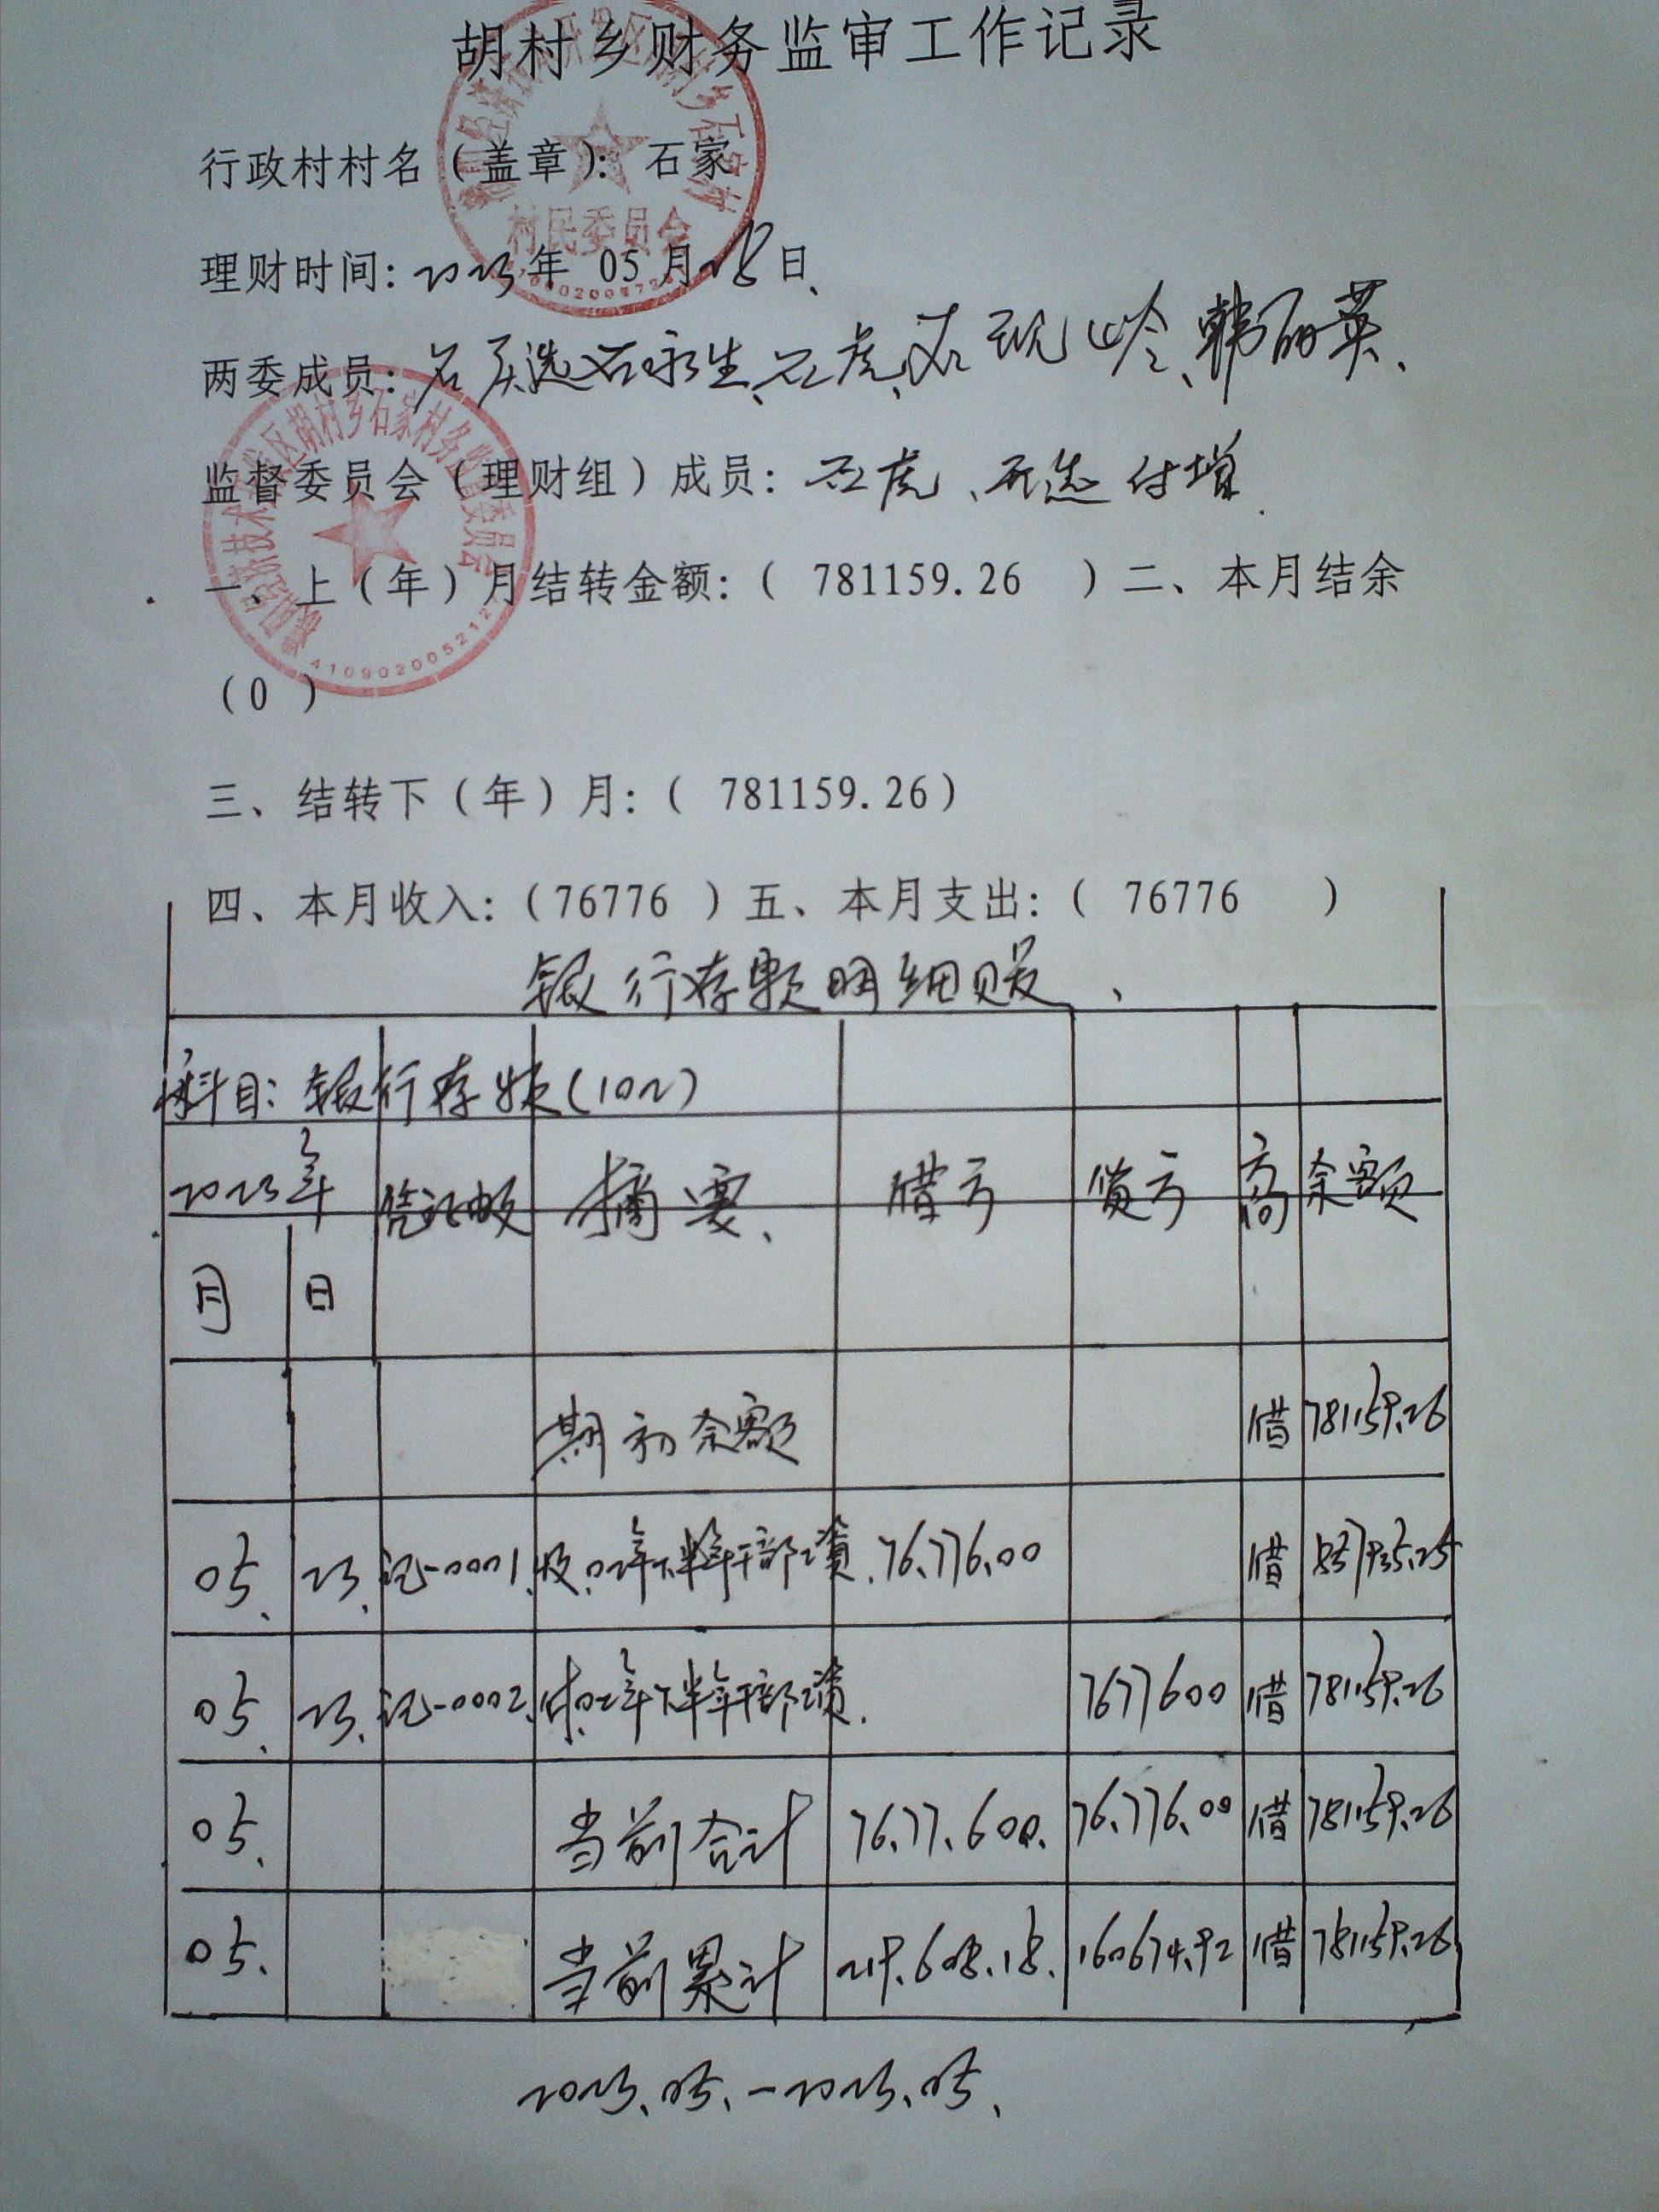 胡村乡财务监审工作记录
行政村村名（盖章）： 石家
村民委员会
理财时间：2023年 05月28日、
两委成员：石庆选、石永生、石虎、石现岭、韩丽英、
监督委员会（理财组）成员：石虎、石选 付增
一、上（年）月结转金额：（ 781159.26 ）二、本月结余
（0 ）
410902005212
三、结转下（年）月：（ 781159.26）
四、本月收入：（76776 ）五、本月支出：（ 76776 ）
银行存款明细账、
科目：银行存款（102）
2023年 摘要、 借方 贷方 方向 余额
月 日
期初余额 借 781159.26
05、 23、 记-0001、 收、02年下半年干部工资、 76、776、00 借
05、 23、 记-0002、 付、02年下半年干部工资、 7677600 借 781159.26
05、 当前合计 76、77、600、 76、776、00 借 781159.26
05、 当前累计 219、608、18、 160674.92 借 781159.26
2023、05、-2023、05、